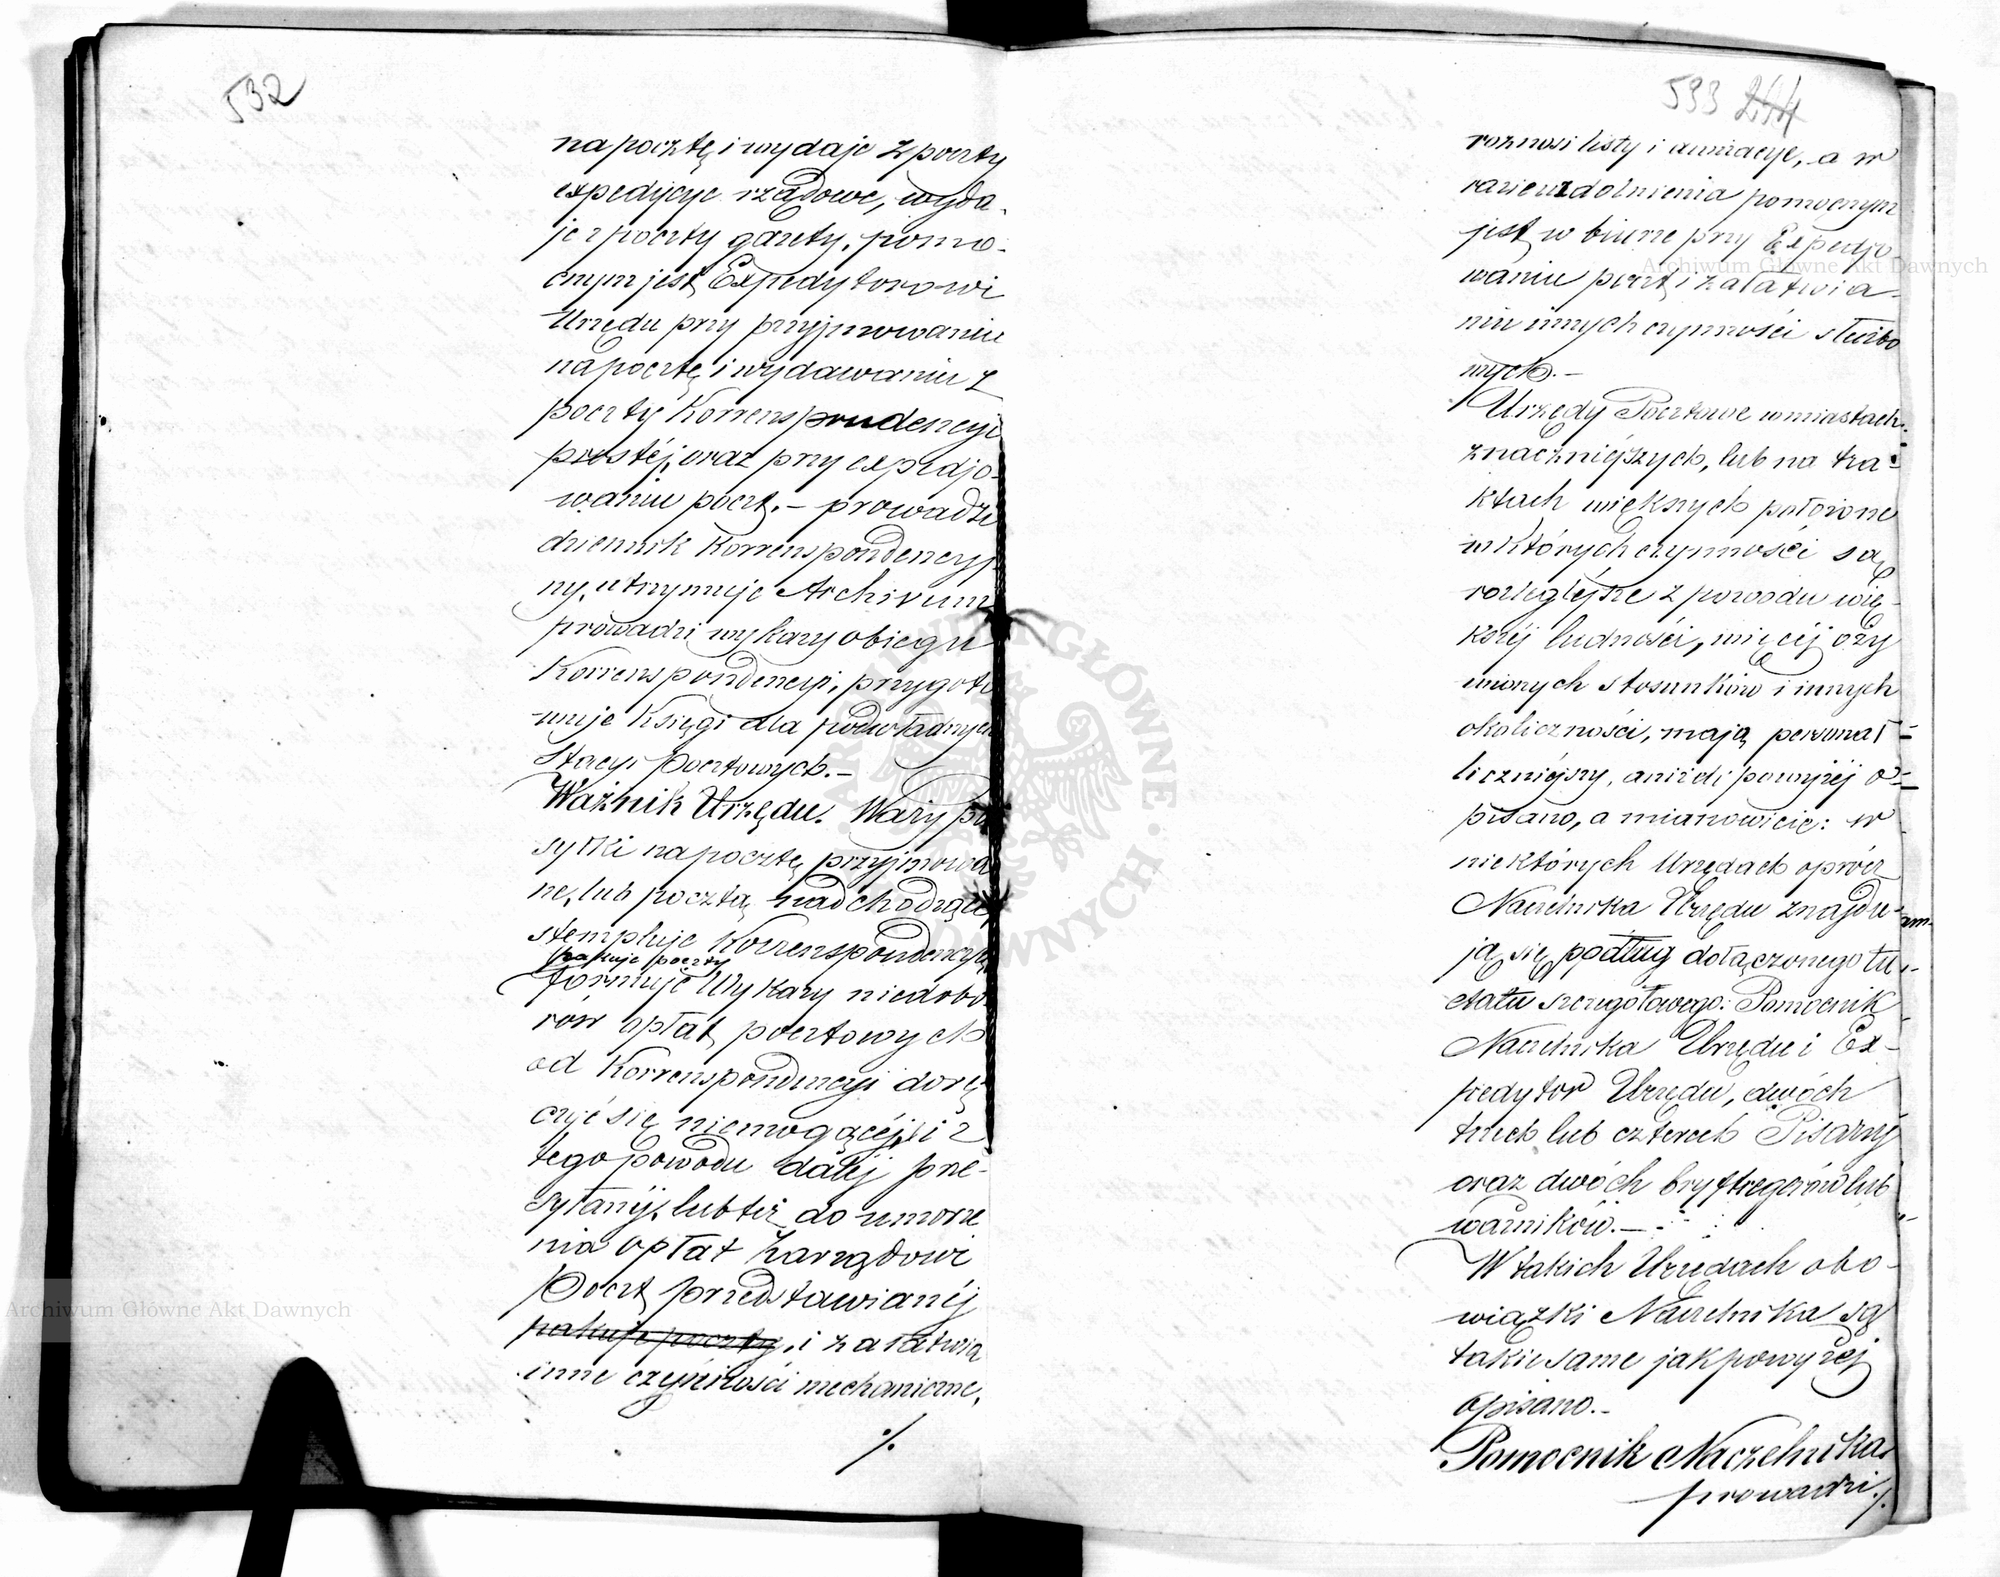 532
na pocztę i wydaje z poczty
expedycye rządowe, wyda-
je z poczty gazety, pomo-
cnym jest Expedytorowi
Urzędu przy przyjmowaniu
na pocztę i wydawaniu z
poczty Korrenspondencyi
prostéj, oraz przy expedjo-
waniu poczt. – prowadzi
dziennik Korrenspondencyj-
ny, utrzymuje Archivum
prowadzi wykazy obiegu
Korrenspondencyi, przygoto
wuje Księgi dla podwładnych
Stacyi Pocztowych. –
Ważnik Urzędu. Waży po
syłki na pocztę przyjmowa
ne, lub pocztą nadchodzące
stempluje Korrenspondencyą
pakuje poczty
formuje Wykazy niedobo
rów opłat pocztowych
od Korrenspondencyi dorę
czyć się niemogącéj, i z
tego powodu daléj prze-
syłanéj, lub też do umorze
nia opłat Zarządowi
Poczt przedstawianéj
pakuje poczty, i załatwia
inne czynności mechaniczne,
./.
593 244
roznosi listy i awizacye, a w
razie uzdolnienia pomocnym
jest w biurze przy Expedjo-
waniu poczt i załatwia-
niu innych czynności służbo
wych. –
Urzędy Pocztowe w miastach
znaczniéjszych, lub na tra-
ktach większych położone
w których czynności są
rozległéjsze z powodu wię-
kszéj ludności, więcéj oży
wionych stosunków i innych
okoliczności, mają personal
liczniéjszy, aniżeli powyżéj o-
pisano, a mianowicie: w
niektórych Urzędach oprócz
Naczelnika Urzędu znajdu-
ją się podług dołączonego tu
etatu szczegółowego: Pomocnik
Naczelnika Urzędu i Ex-
pedytor Urzędu, dwóch
trzech lub czterech Pisarzy
oraz dwóch bryftregerów lub
ważników. –
W takich Urzędach obo-
wiązki Naczelnika są
takie same jak powyżéj
opisano. –
Pomocnik Naczelnika
prowadzi ./.
Archiwum Główne Akt Dawnych
Archiwum Główne Akt Dawnych
ARCHIWUM GŁÓWNE AKT DAWNYCH